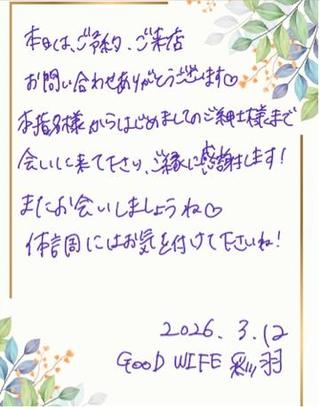 本日は、ご予約、ご来店
お問い合わせありがとうございます♡
本指名様からはじめましてのご紳士様まで
会いに来て下さり、ご縁に感謝します!
またお会いしましょうね♡
体調にはお気を付けて下さいね!
2026.3.12
GOOD WIFE 彩羽